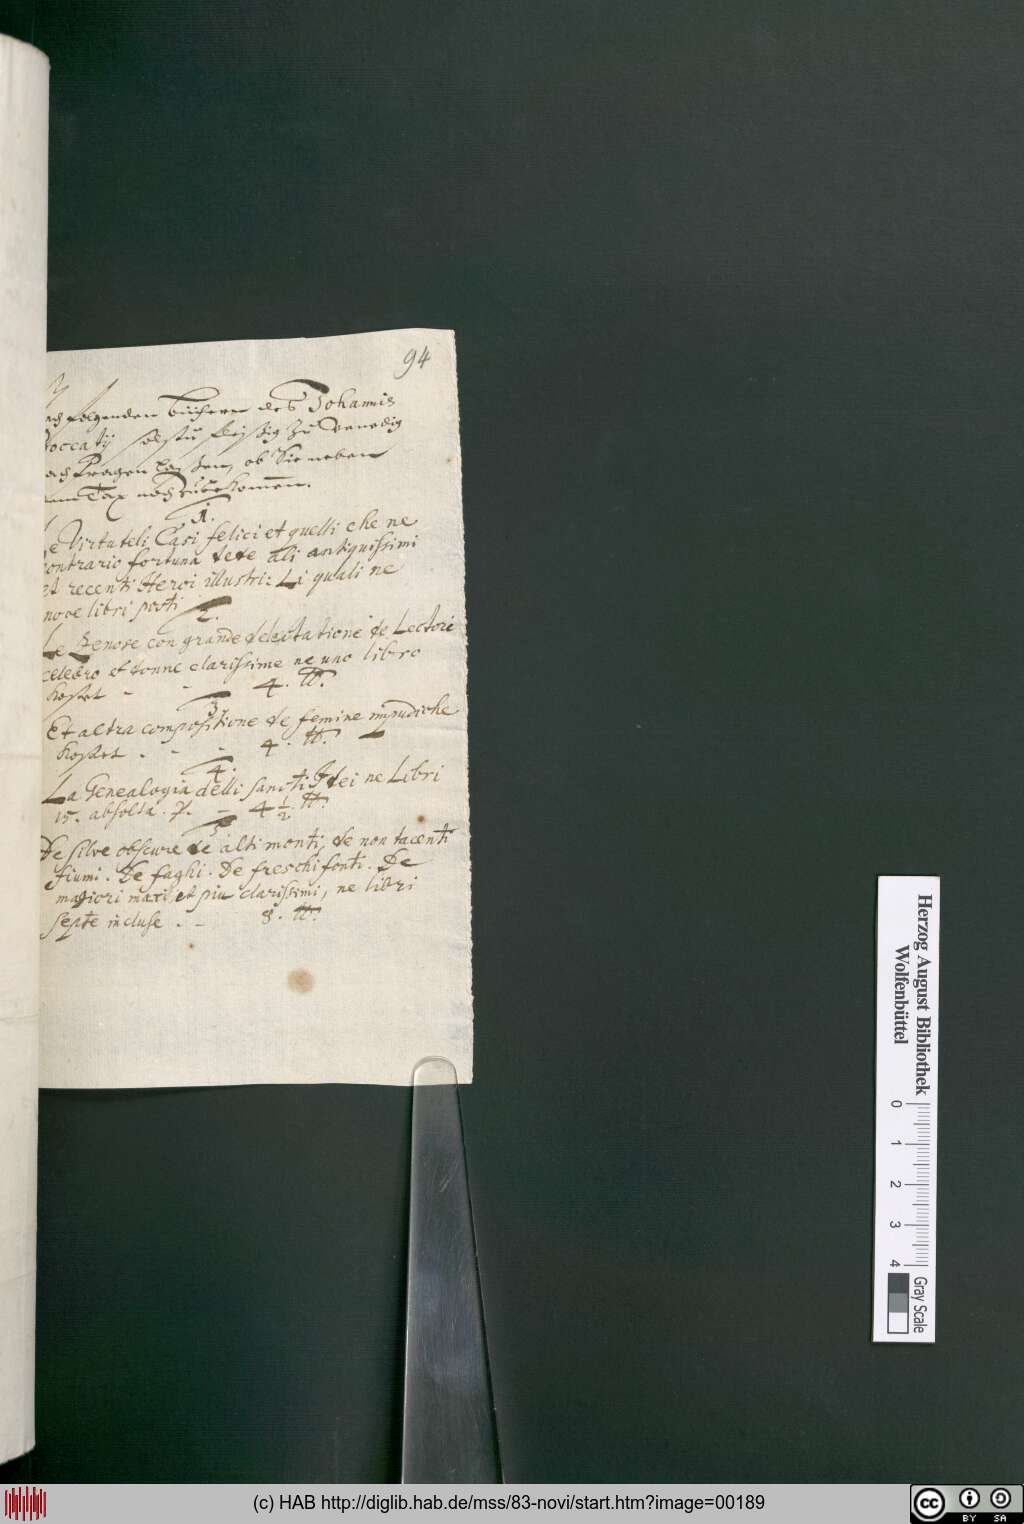 94
folgenden büchern des Johannis
Boccatij solstu fleißig zu Venedig
fragen laßen, ob Sie neben
Tax noch zu bekomen.
1.
Le Virtuteli Casi felici et quelli che ne
contrario fortuna dede ali antiquissimi
et recenti Heroi illustri: Li quali ne
nove libri posti
2.
Le Genore con grande delectatione de Lectori
celebro et donne clarissime ne uno libro
kostet - - 4. tt.
3.
Et altra compositione de femine impudiche
kostet . - - 4. tt.
4.
La Genealogia delli sancti Idei ne Libri
15. absolta. - 4 1/2 tt.
5
De silve obscure de alti monti, de non tacenti
fiumi. De faghi. De freschi fonti. De
magiori mari, et piu clarissimi, ne libri
septe incluse . - 8. tt.
Herzog August Bibliothek
Wolfenbüttel
0 1 2 3 4
Gray Scale
(c) HAB http://diglib.hab.de/mss/83-novi/start.htm?image=00189
cc BY SA